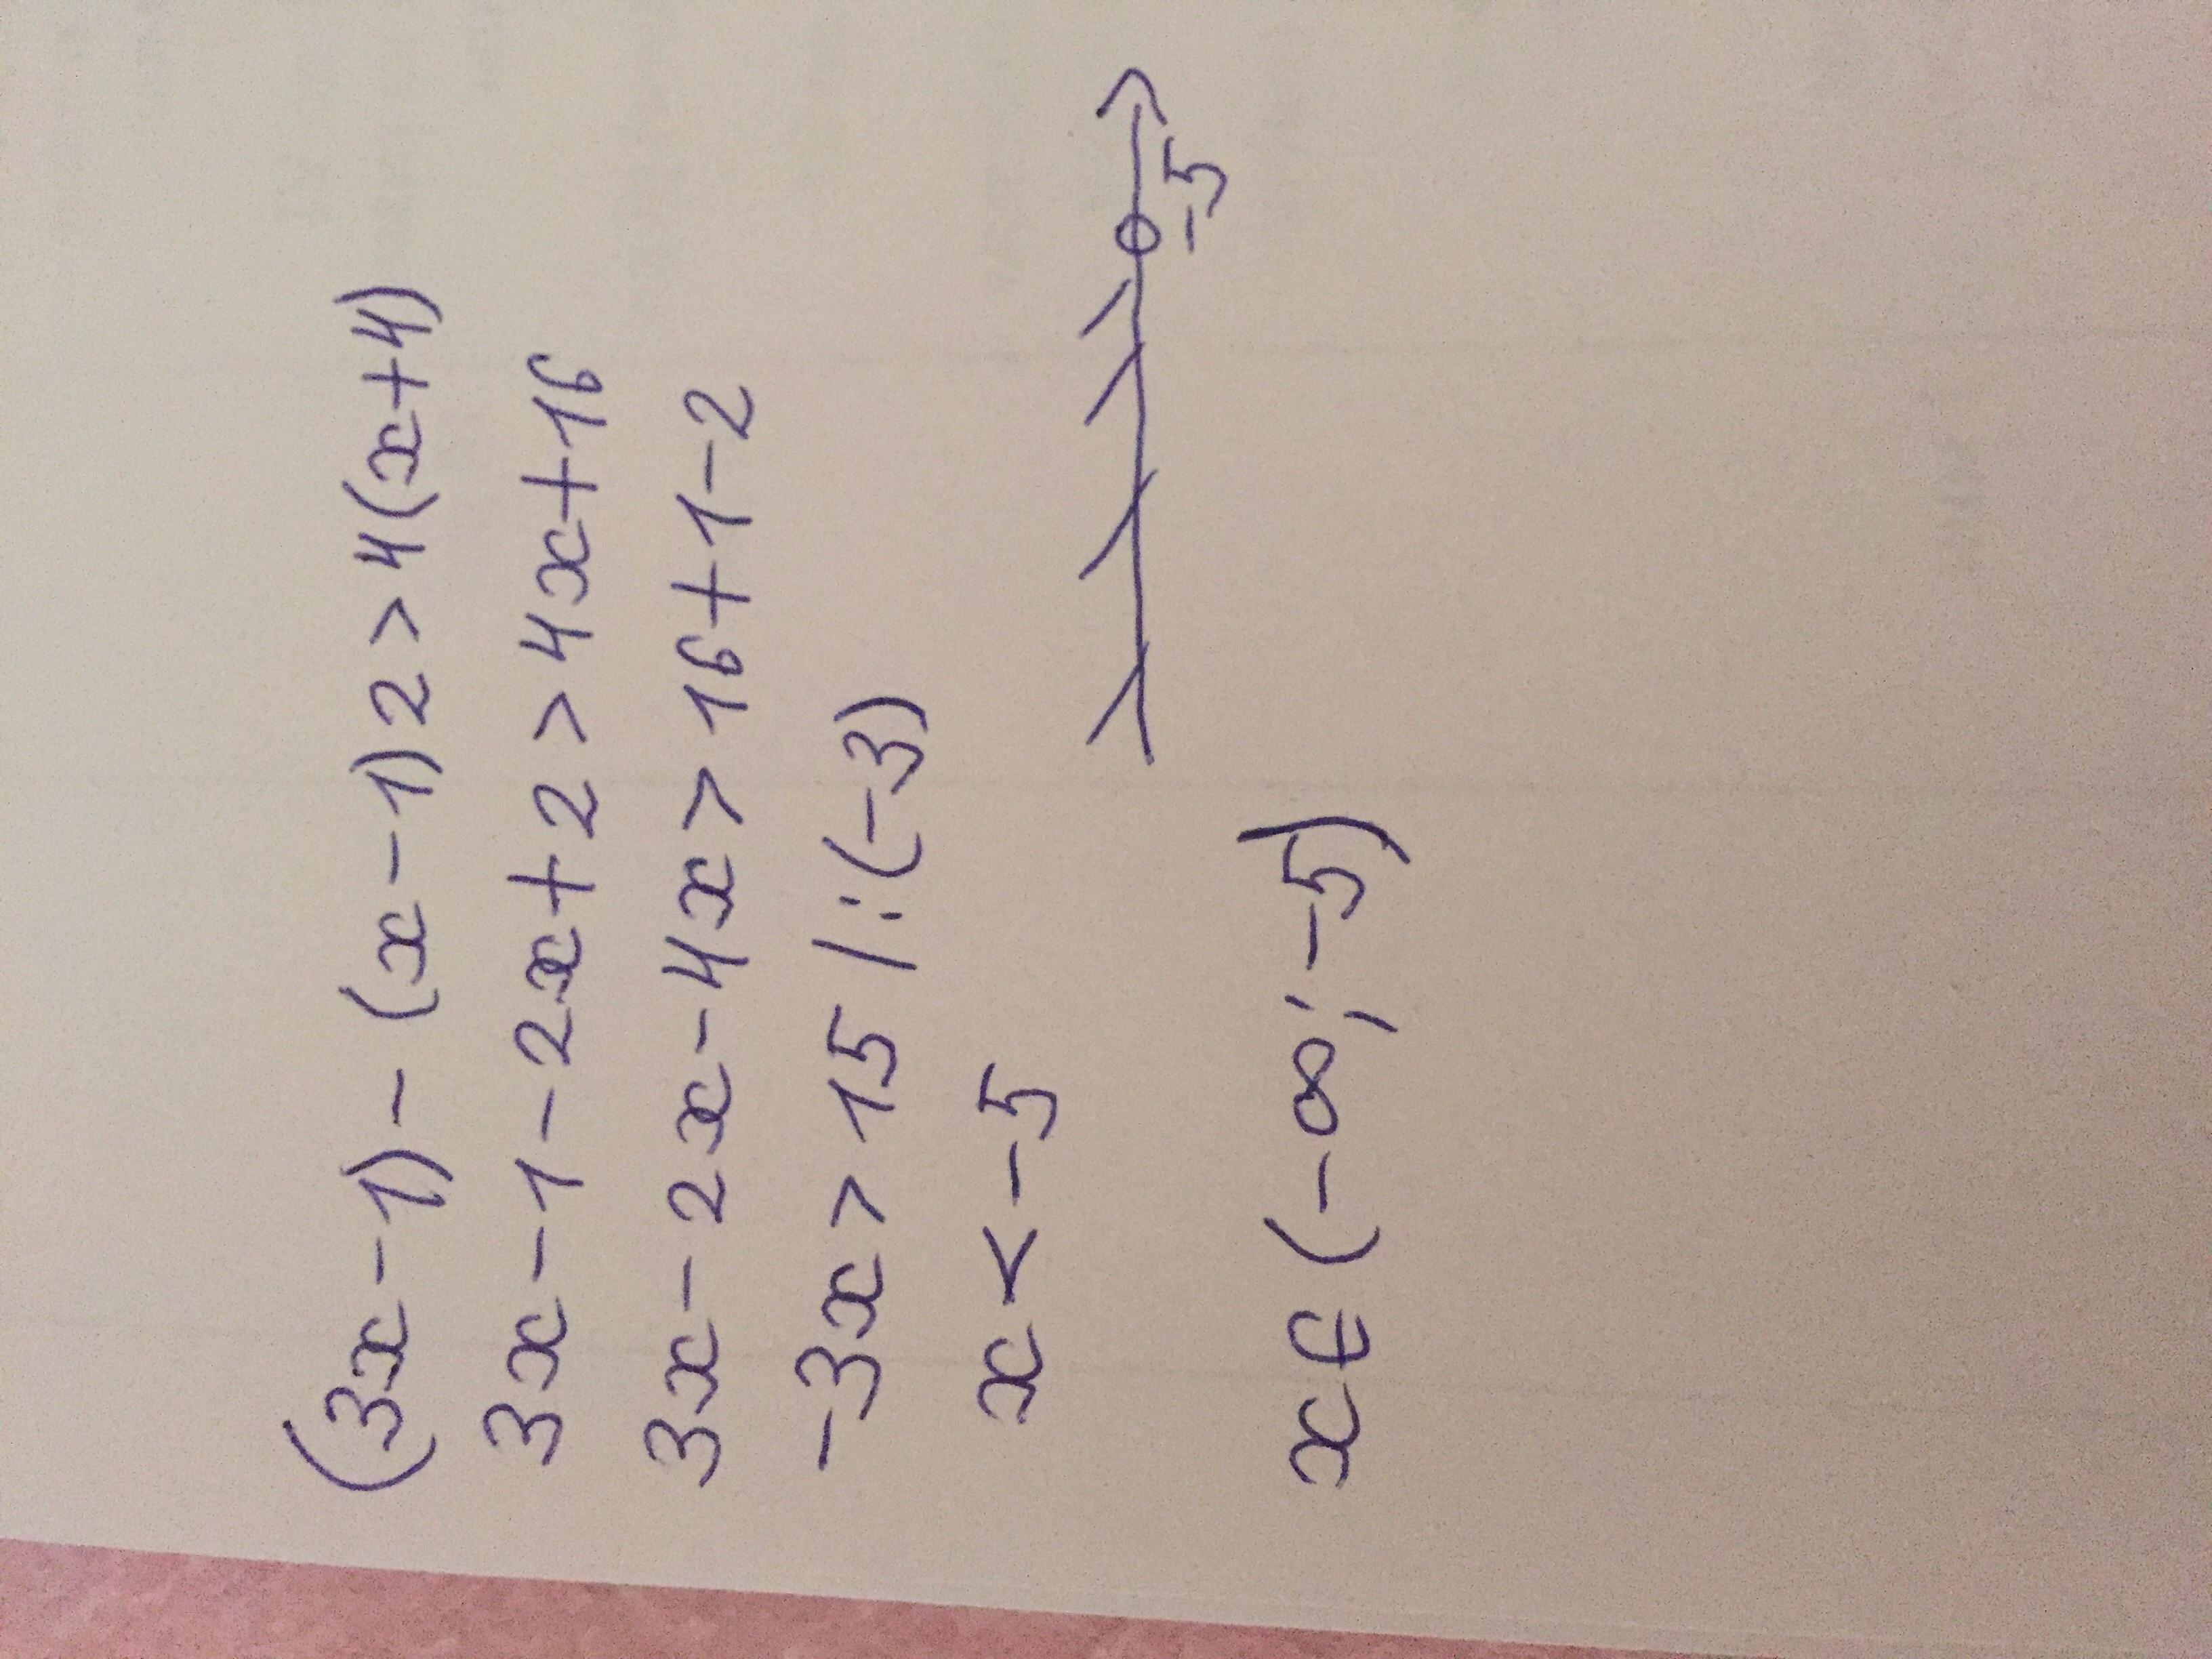 (3x-1)-(x-1)2>4(x+4)
3x-1-2x+2>4x+16
3x-2x-4x>16+1-2
-3x>15 /:(-3)
x<-5
-5
x∈(-∞;-5)